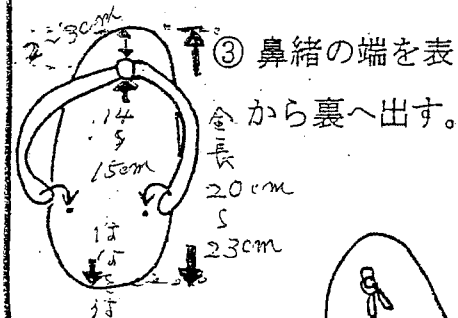 2~3cm
③ 鼻緒の端を表
から裏へ出す。
14
〜
15cm
全長
20cm
〜
23cm